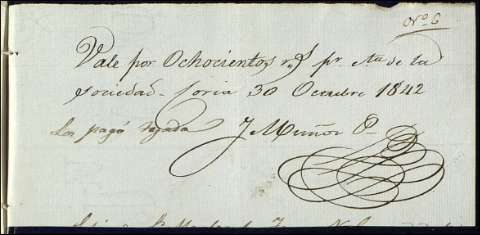 Nº 6
Vale por Ochocientos rs pr cta de la
sociedad Soria 30 Octubre 1842
Los pagó Tejada J Muñoz